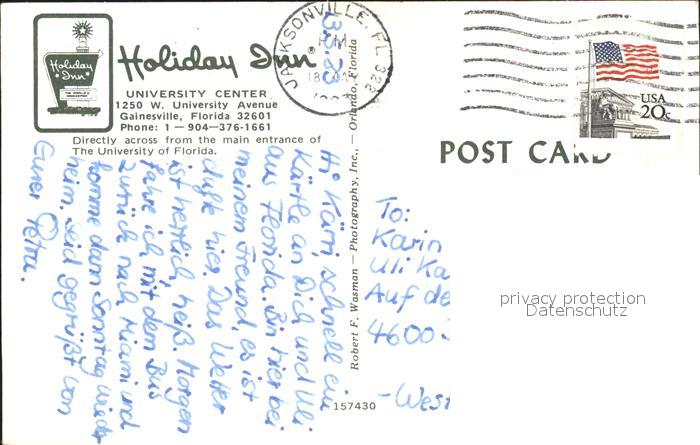 Holiday Inn
Holiday Inn®
UNIVERSITY CENTER
1250 W. University Avenue
Gainesville, Florida 32601
Phone: 1 — 904—376-1661
Directly across from the main entrance of
The University of Florida.
JACKSONVILLE FL 322
PM
18
USA
20c
POST CARD
Robert F. Wasman — Photography, Inc., — Orlando, Florida
157430
Hi Karin, schnell ein
Kärtle an Dich und Uli
aus Florida. Bin hier bei
meinem Freund, es ist
dufte hier. Das Wetter
ist herrlich heiß. Morgen
fahre ich mit dem Bus
zurück nach Miami und
komme dann Sonntag wieder
heim. Seid gegrüßt von
Eurer Petra.
To:
Karin
Uli Ka
Auf de
4600
-West
privacy protection
Datenschutz